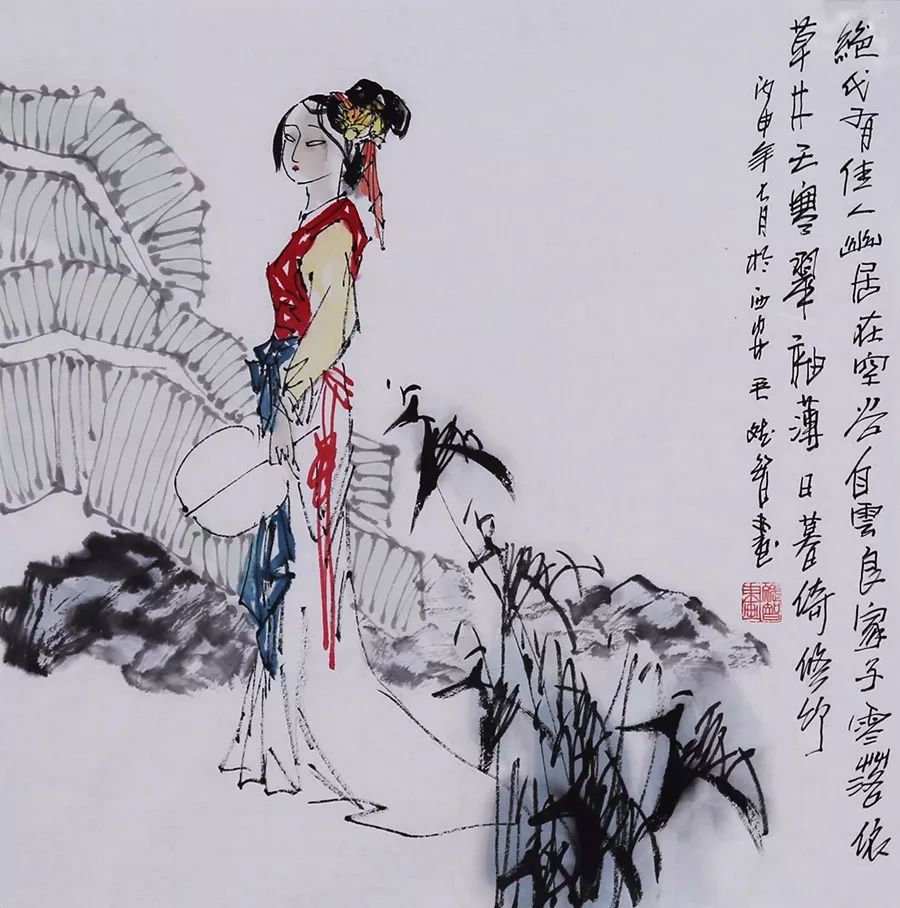 絕代有佳人幽居在空谷自雲良家子零落依
草木天寒翠袖薄日暮倚修竹
丙申年七月於西安
智畫